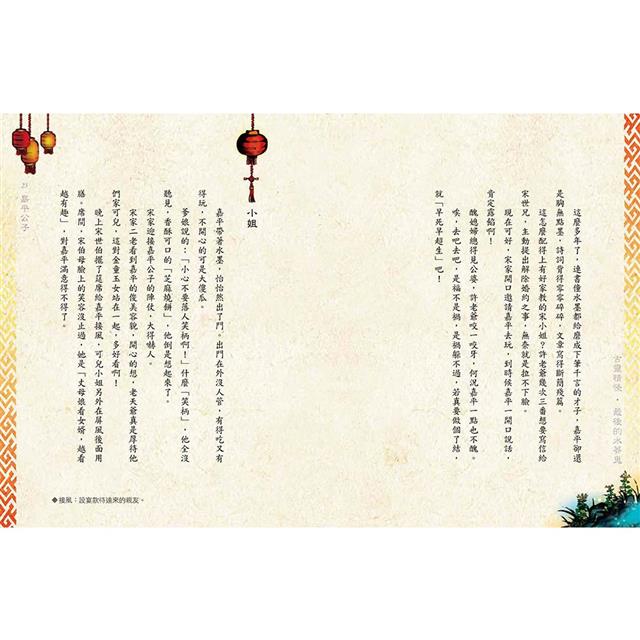 古靈精怪．最後的水答鬼
這麼多年了，連書僮水墨都給磨成下筆千言的才子，嘉平卻還
是胸無點墨，詩詞背得零零碎碎，文章寫得斷簡殘篇。
這怎麼配得上有好家教的宋小姐？許老爺幾次三番想要寫信給
宋世兄，主動提出解除婚約之事，無奈就是拉不下臉。
現在可好，宋家開口邀請嘉平去玩，到時候嘉平一開口說話，
肯定露餡啊！
醜媳婦總得見公婆，許老爺咬一咬牙，何況嘉平一點也不醜。
唉，去吧去吧，是福不是禍，是禍躲不過，若真要做個了結，
就「早死早超生」吧！
小姐
嘉平帶著水墨，怡怡然出了門。出門在外沒人管，有得吃又有
得玩，不開心的可是大傻瓜。
爹娘說的：「小心不要落人笑柄啊！」什麼「笑柄」，他全沒
聽見，香酥可口的「芝麻燒餅」，他倒是想起來了。
宋家迎接嘉平公子的陣仗，大得嚇人。
宋家二老看到嘉平的俊美容貌，開心的想，老天爺真是厚待他
們家可兒，這對金童玉女站在一起，多好看啊！
晚上宋世伯擺了筵席給嘉平接風，可兒小姐另外在屏風後面用
膳。席間，宋伯母臉上的笑容沒止過，她是「丈母娘看女婿，越看
越有趣」，對嘉平滿意得不得了。
◆接風：設宴款待遠來的親友。
21 嘉平公子